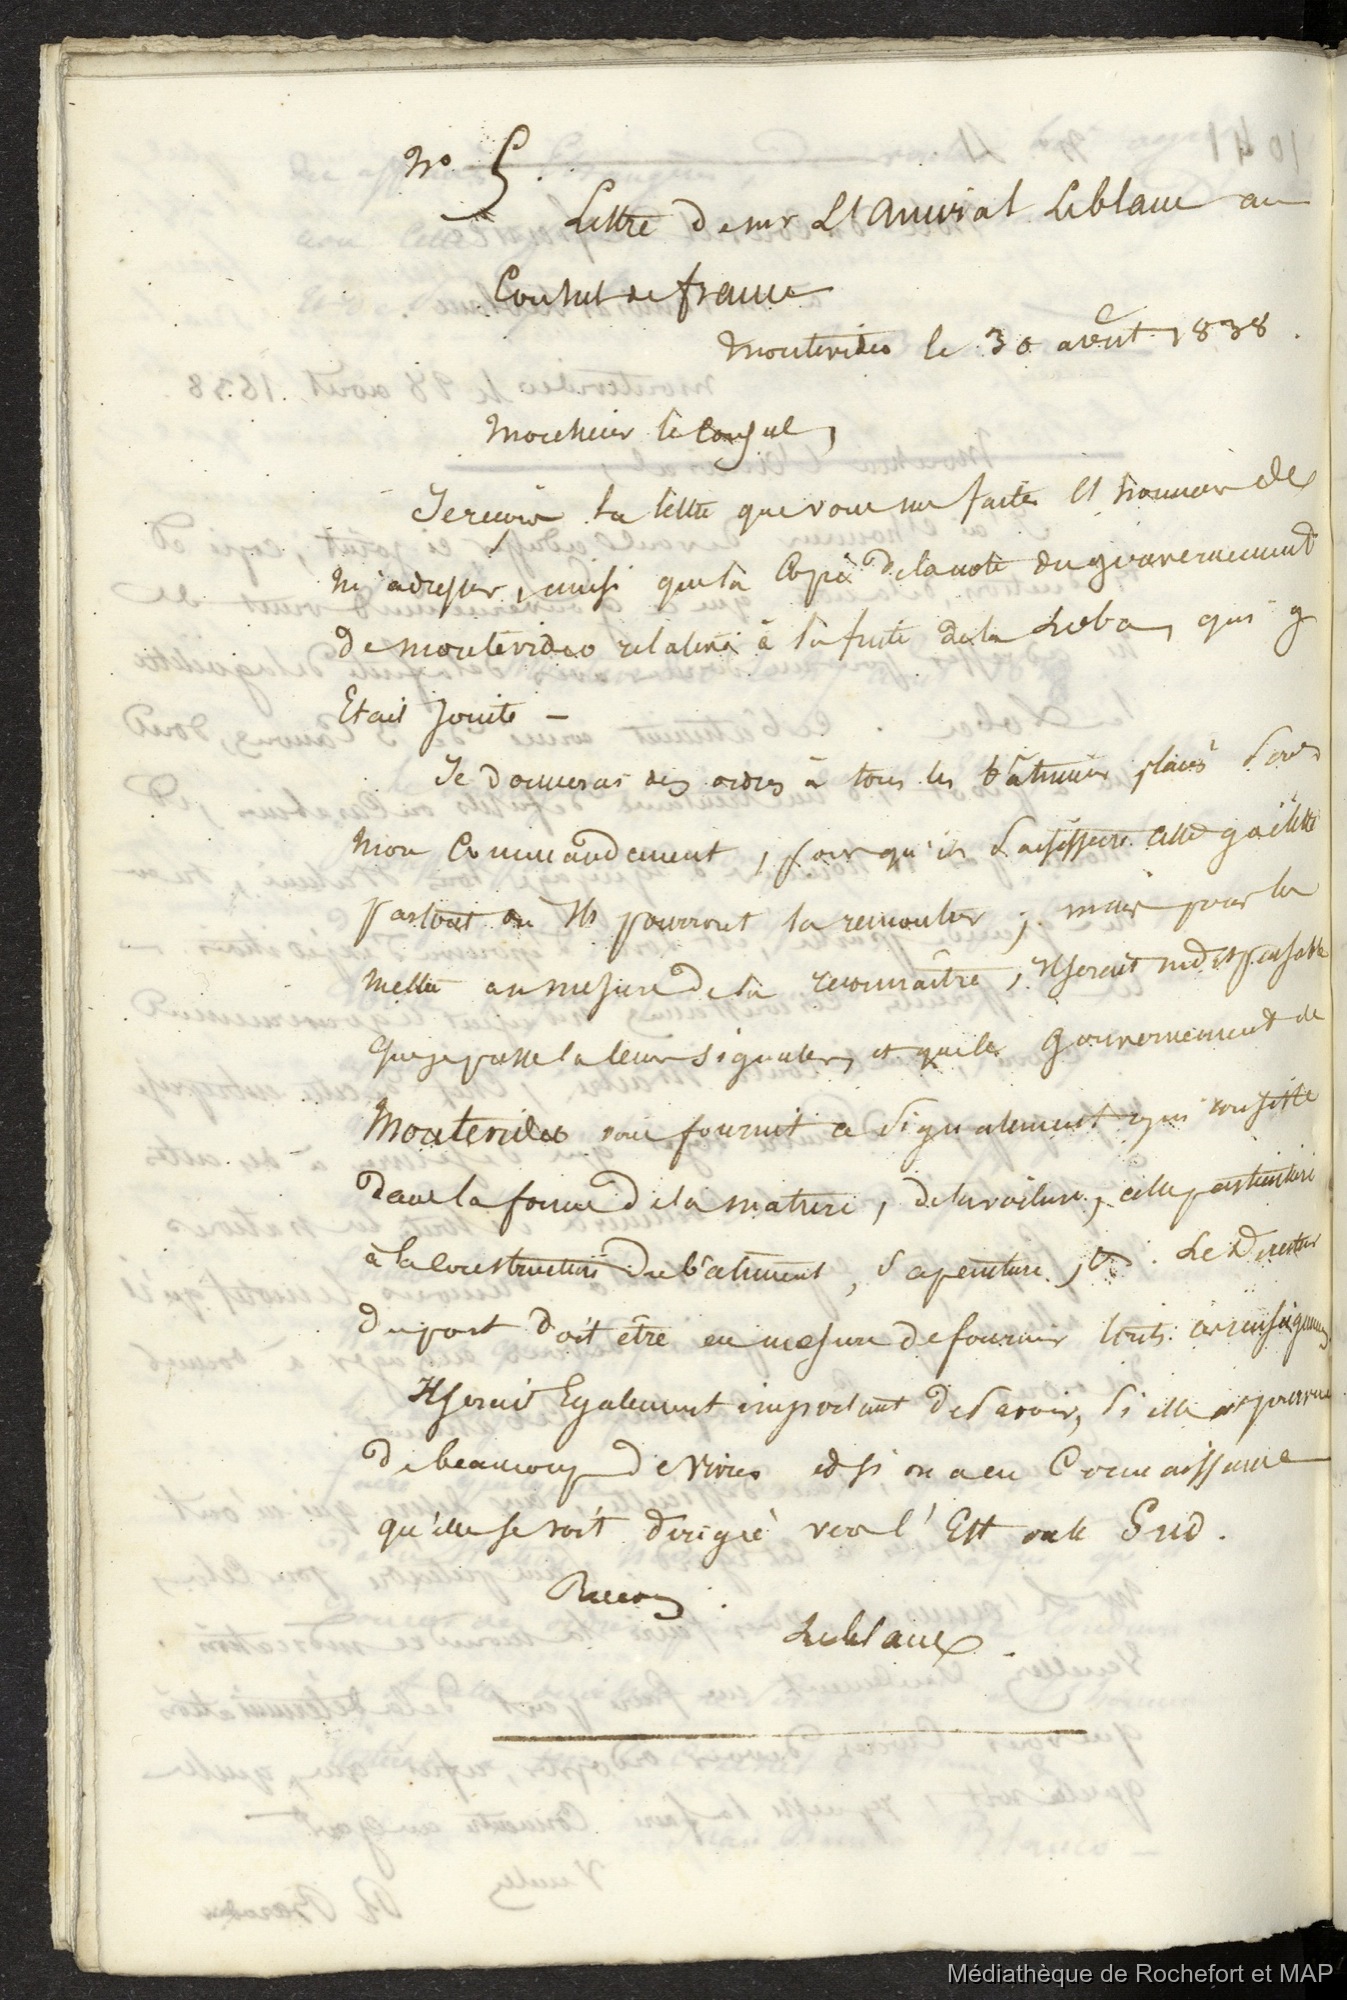 No. 5.
Lettre de mr L'amiral Leblanc au
Consul de france
Montevideo le 30 août 1838.
Monsieur le Consul,
Je reçois la lettre que vous me faites l'honneur de
m'adresser, ainsi que la Copie de la note du gouvernement
de montévideo relative à la fuite de la Loba, qui y
Etait jointe —
Je donnerai des ordres à tous les bâtimens placés sous
mon Commandement, pour qu'ils saisissent cette goëlette
partout ou Ils pourront la rencontrer; mais pour les
mettre en mesure de la reconnaître, Il serait indispensable
que je puisse la leur signaler, et que le Gouvernement de
Montevideo vous fournit ce signalement qui consiste
dans la forme de la mâture, de la voilure, celle particulière
à la construction du bâtiment, sa peinture, &. Le Directeur
du port doit être en mesure de fournir tous ces renseignemens
Il serait Egalement important de savoir, si elle est pourvue
de beaucoup de vivres et si on a eu Connaissance
qu'elle se soit dirigée vers l'Est ou le Sud.
Recevez.
Leblanc.
Médiathèque de Rochefort et MAP